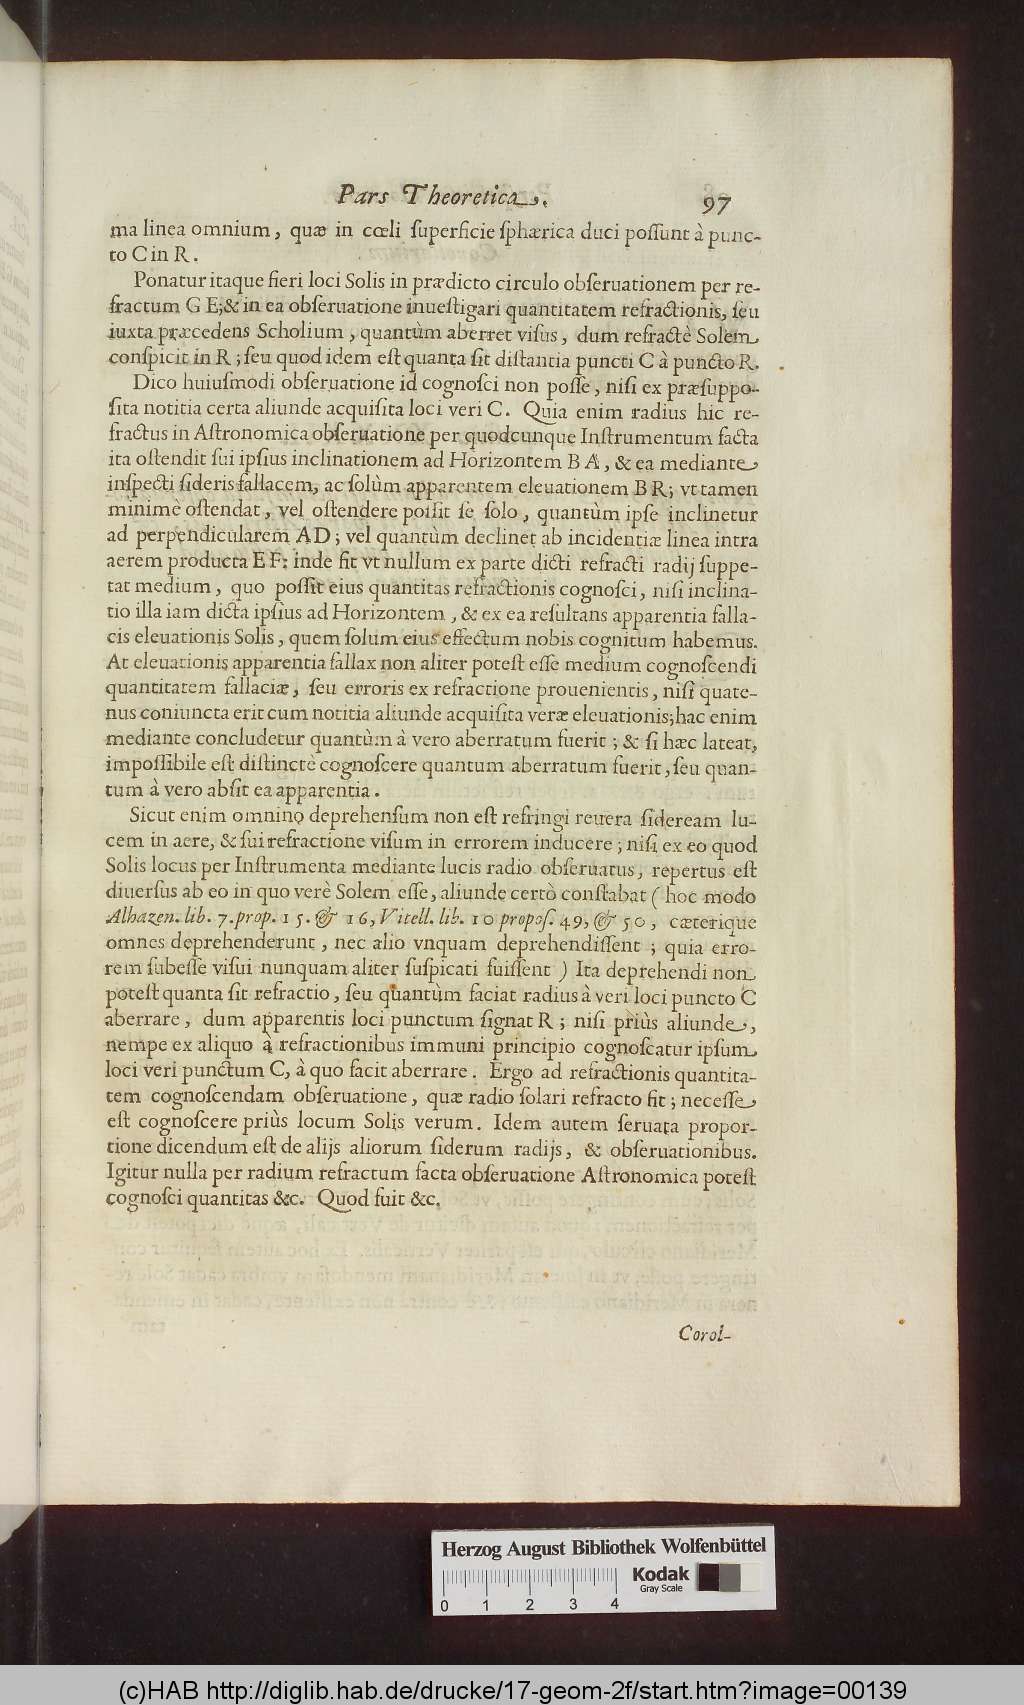 Pars Theoretica. 97
ma linea omnium, quæ in cœli ſuperficie ſphærica duci poſſunt à punc-
to C in R.
Ponatur itaque fieri loci Solis in prædicto circulo obſeruationem per re-
fractum G E; & in ea obſeruatione inueſtigari quantitatem refractionis, ſeu
iuxta præcedens Scholium, quantùm aberret viſus, dum refractè Solem
conſpicit in R; ſeu quod idem eſt quanta ſit diſtantia puncti C à puncto R.
Dico huiuſmodi obſeruatione id cognoſci non poſſe, niſi ex præſuppo-
ſita notitia certa aliunde acquiſita loci veri C. Quia enim radius hic re-
fractus in Aſtronomica obſeruatione per quodcunque Inſtrumentum facta
ita oſtendit ſui ipſius inclinationem ad Horizontem B A, & ea mediante
inſpecti ſideris fallacem, ac ſolùm apparentem eleuationem B R; vt tamen
minimè oſtendat, vel oſtendere poſſit ſe ſolo, quantùm ipſe inclinetur
ad perpendicularem AD; vel quantùm declinet ab incidentiæ linea intra
aerem producta E F: inde fit vt nullum ex parte dicti refracti radij ſuppe-
tat medium, quo poſſit eius quantitas refractionis cognoſci, niſi inclina-
tio illa iam dicta ipſius ad Horizontem, & ex ea reſultans apparentia falla-
cis eleuationis Solis, quem ſolum eius effectum nobis cognitum habemus.
At eleuationis apparentia fallax non aliter poteſt eſſe medium cognoſcendi
quantitatem fallaciæ, ſeu erroris ex refractione prouenientis, niſi quate-
nus coniuncta erit cum notitia aliunde acquiſita veræ eleuationis; hac enim
mediante concludetur quantùm à vero aberratum fuerit; & ſi hæc lateat,
impoſſibile eſt diſtinctè cognoſcere quantum aberratum fuerit, ſeu quan-
tum à vero abſit ea apparentia.
Sicut enim omnino deprehenſum non eſt refringi reuera ſideream lu-
cem in aere, & ſui refractione viſum in errorem inducere; niſi ex eo quod
Solis locus per Inſtrumenta mediante lucis radio obſeruatus, repertus eſt
diuerſus ab eo in quo verè Solem eſſe, aliunde certò conſtabat (hoc modo
Alhazen. lib. 7. prop. 15. & 16, Vitell. lib. 10 propoſ. 49, & 50, cæterique
omnes deprehenderunt, nec alio vnquam deprehendiſſent; quia erro-
rem ſubeſſe viſui nunquam aliter ſuſpicati fuiſſent) Ita deprehendi non
poteſt quanta ſit refractio, ſeu quantùm faciat radius à veri loci puncto C
aberrare, dum apparentis loci punctum ſignat R; niſi priùs aliunde,
nempe ex aliquo à refractionibus immuni principio cognoſcatur ipſum
loci veri punctum C, à quo facit aberrare. Ergo ad refractionis quantita-
tem cognoſcendam obſeruatione, quæ radio ſolari refracto fit; neceſſe
eſt cognoſcere priùs locum Solis verum. Idem autem ſeruata propor-
tione dicendum eſt de alijs aliorum ſiderum radijs, & obſeruationibus.
Igitur nulla per radium refractum facta obſeruatione Aſtronomica poteſt
cognoſci quantitas &c. Quod fuit &c.
Corol-
Herzog August Bibliothek Wolfenbüttel
Kodak
Gray Scale
0 1 2 3 4
(c)HAB http://diglib.hab.de/drucke/17-geom-2f/start.htm?image=00139